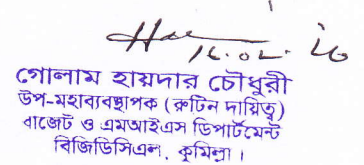 16.02.20
গোলাম হায়দার চৌধুরী
উপ-মহাব্যবস্থাপক (রুটিন দায়িত্ব)
বাজেট ও এমআইএস ডিপার্টমেন্ট
বিজিডিসিএল, কুমিল্লা।